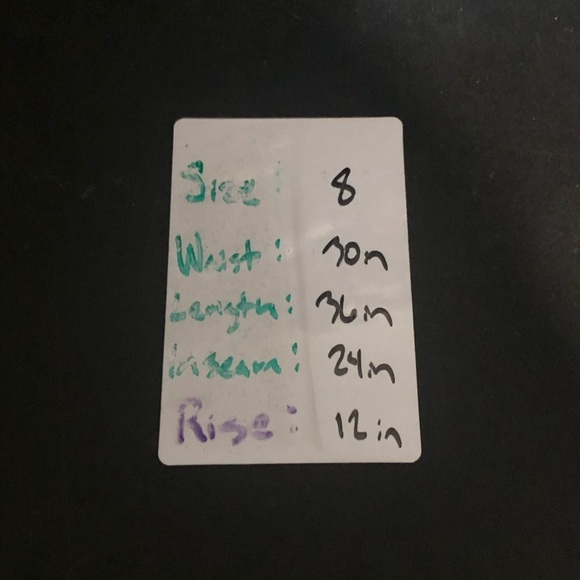 Size: 8
Waist: 30in
Length: 36in
Inseam: 24in
Rise: 12in